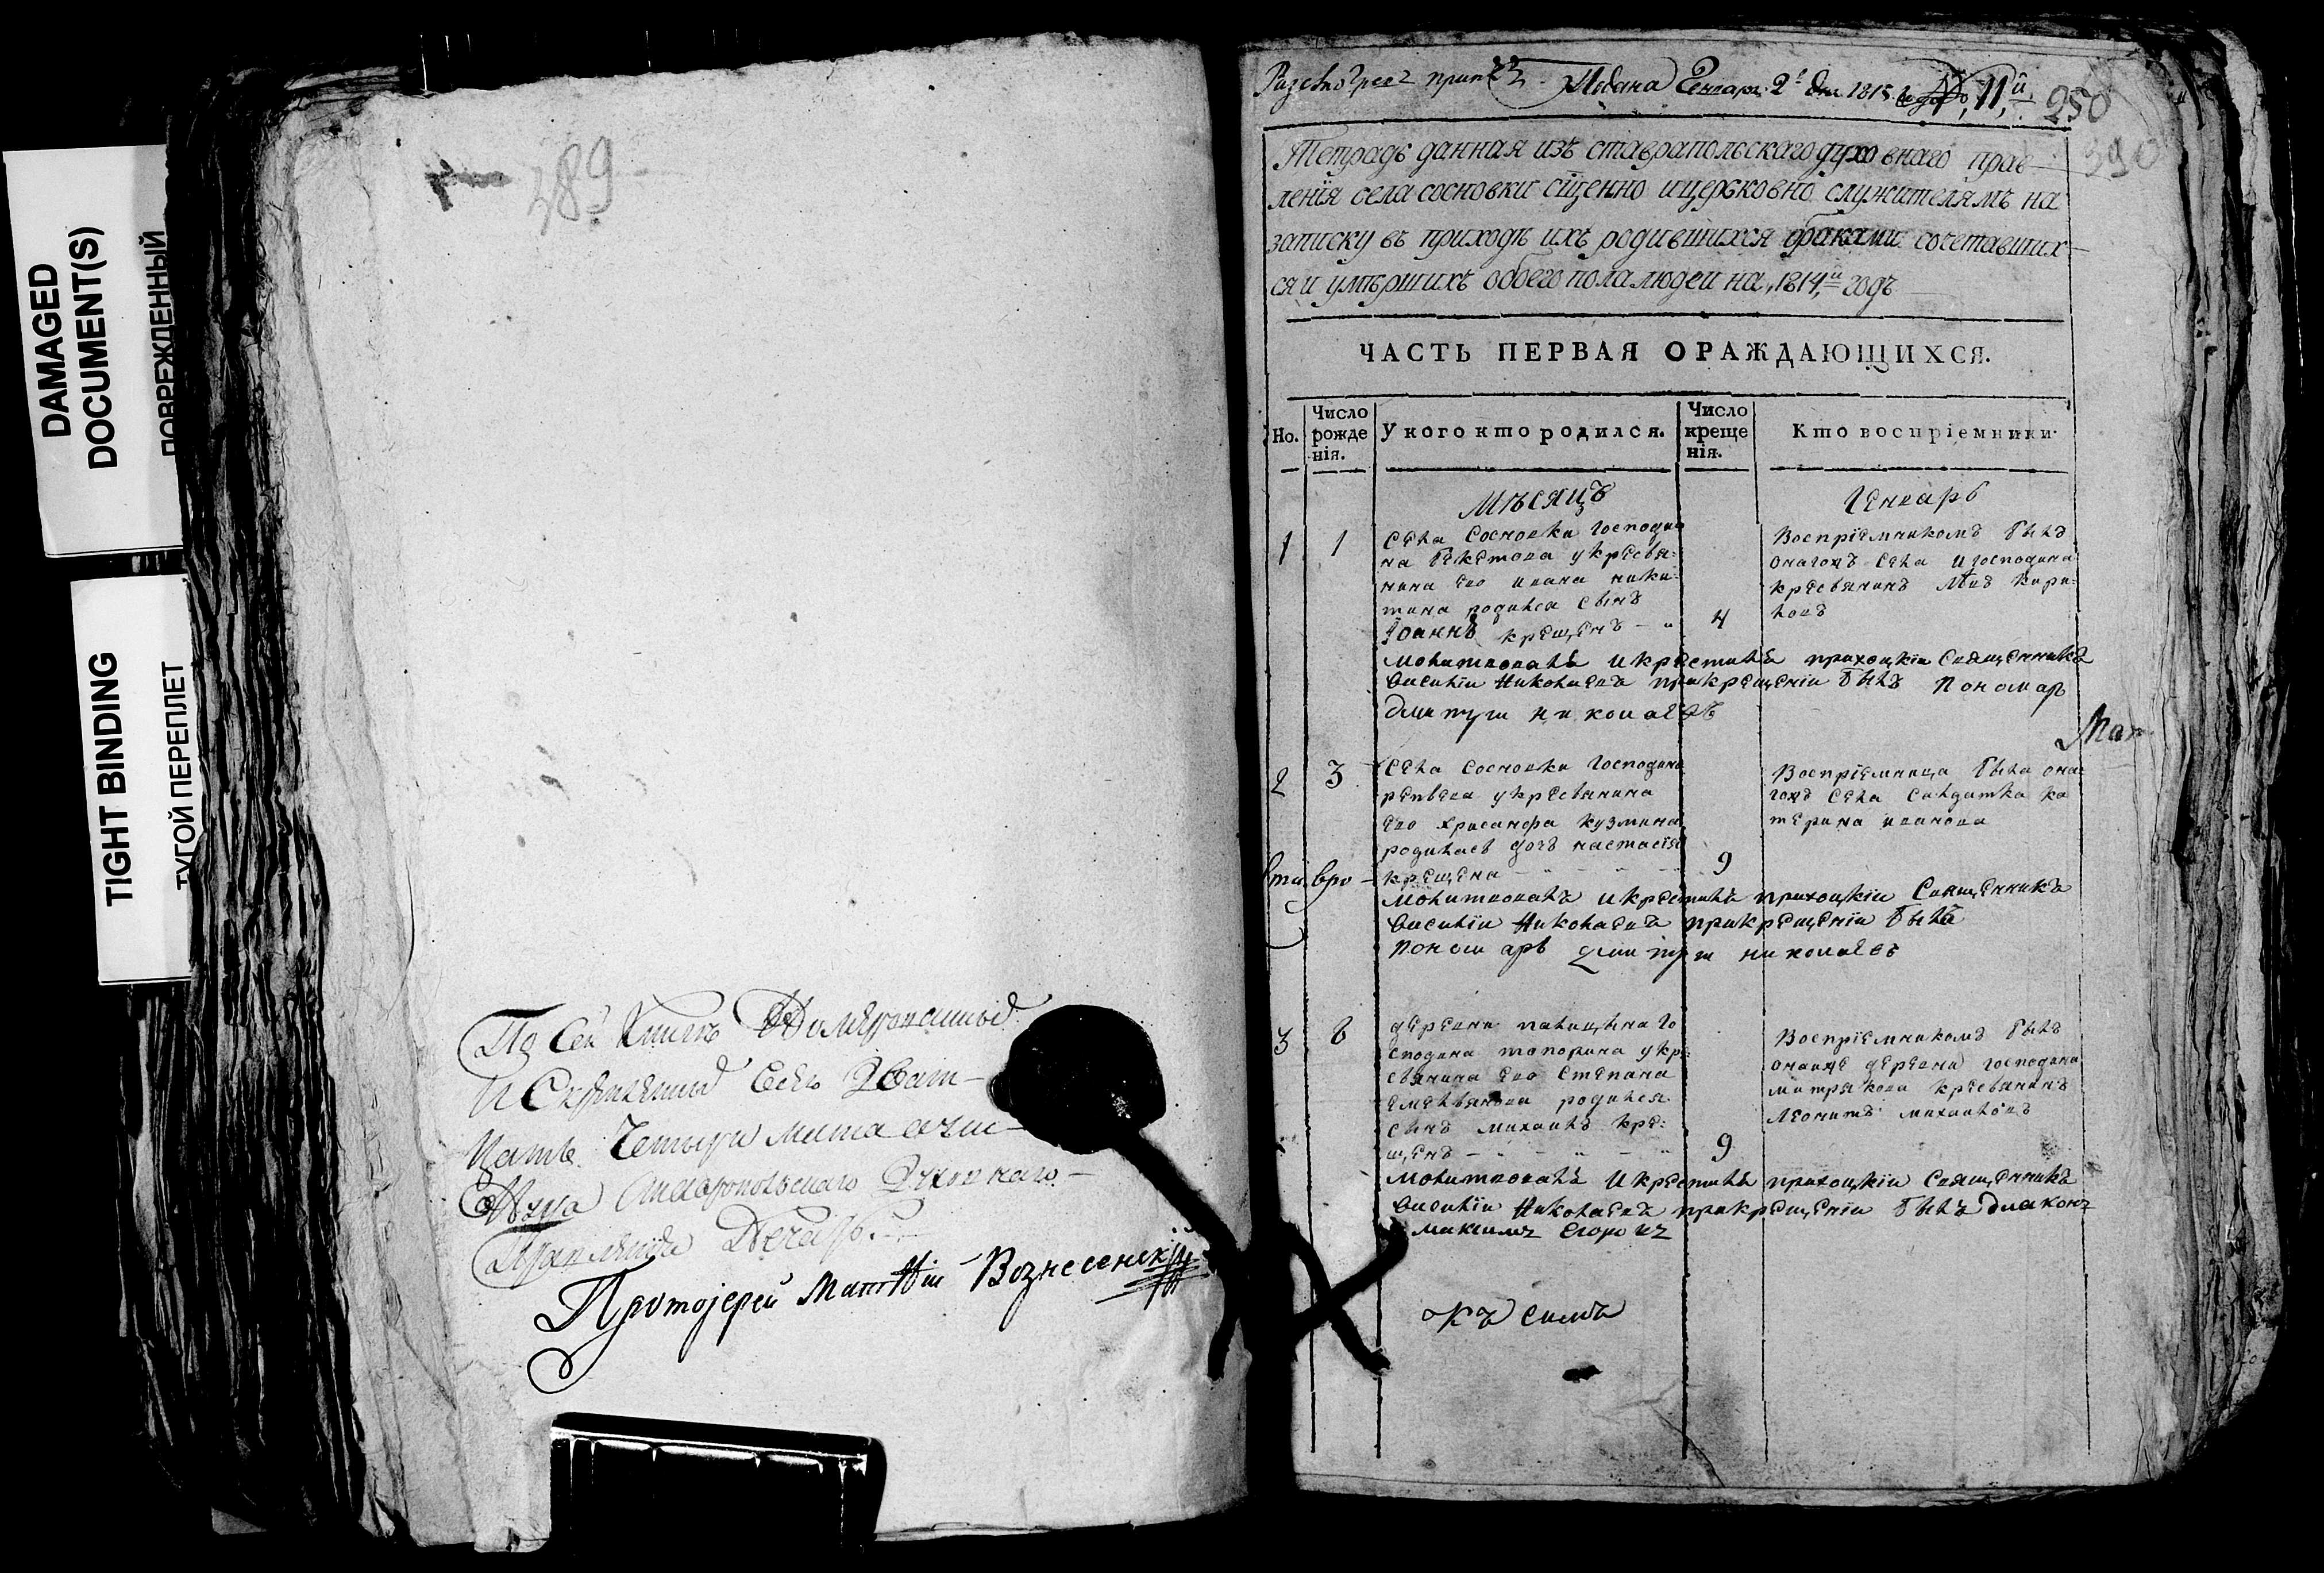 DAMAGED
DOCUMENT(S)
ПОВРЕЖДЕННЫЙ
TIGHT BINDING
ТУГОЙ ПЕРЕПЛЕТ
389
Сей
и Скрепленныхъ Дват-
цать Четыри листа
Ставропольскаго Духовнаго
Правленїя Печать.
Протоїерей Матѳій Вознесенскій
Генваря 2г дня 1815 года № 11й 250
390
Тетрадь данная изъ ставрапольскаго духовнаго прав-
ленїя села сосновки сщенно и церьковно служителямъ на
записку въ приходѣ ихъ родившихся браками сочетавших-
ся и умѣршихъ обоего пола людеи на 1814й годъ
ЧАСТЬ ПЕРВАЯ ОРАЖДАЮЩИХСЯ.
Но.
Число рожде нія.
У кого кто родился.
Число креще нія.
Кто воспріемники.
Мѣсяцъ Генварь
1 1
Села Сосновки Господи
на Бекетова у кресья
нина ево ивана ники-
тина родился сынъ
Їоаннъ крещенъ 4
Воспрїемникомъ былъ
онагожъ села и господина
кресьянинъ кири-
ловъ
молитвовалъ и крестилъ приходкїи Священникъ
Василїи Николаевъ прикрещенїи былъ Пономарь
дмитри николаевъ
2 3
Села Сосновки Господина
репьева у кресьянина
ево хрисанфа кузмина
родилась дочь настасїя
крещена 9
Воспрїемница была она
гожъ села салдатка ка
терина иванова
молитвовалъ и крестилъ приходкїи Священникъ
Василїи Николаевъ прикрещенїи былъ
Пономарь дмитри николаевъ
3 8
деревни палицына го
сподина топорина у кре
сьянина ево Степана
емельянова родился
сынъ михаилъ кре-
щенъ 9
Воспрїемникомъ былъ
онаиже деревни господина
митрякова кресьянинъ
Леонитъ михаиловъ
молитвовалъ и крестилъ приходкїи Священникъ
Василїи Николаевъ прикрещенїи былъ диаконъ
максимъ Егоровъ
Къ симъ